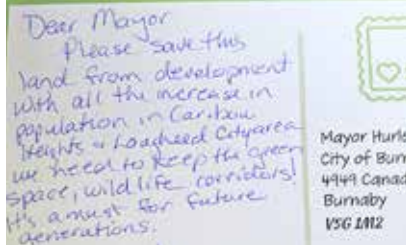 Dear Mayor
Please save this
land from development
with all the increase in
population in Caribou
Heights & Lougheed City area
we need to keep the green
space, wildlife corridors!
It's a must for future
generations.
Mayor Hurle
City of Burn
4949 Canad
Burnaby
V5G 1M2